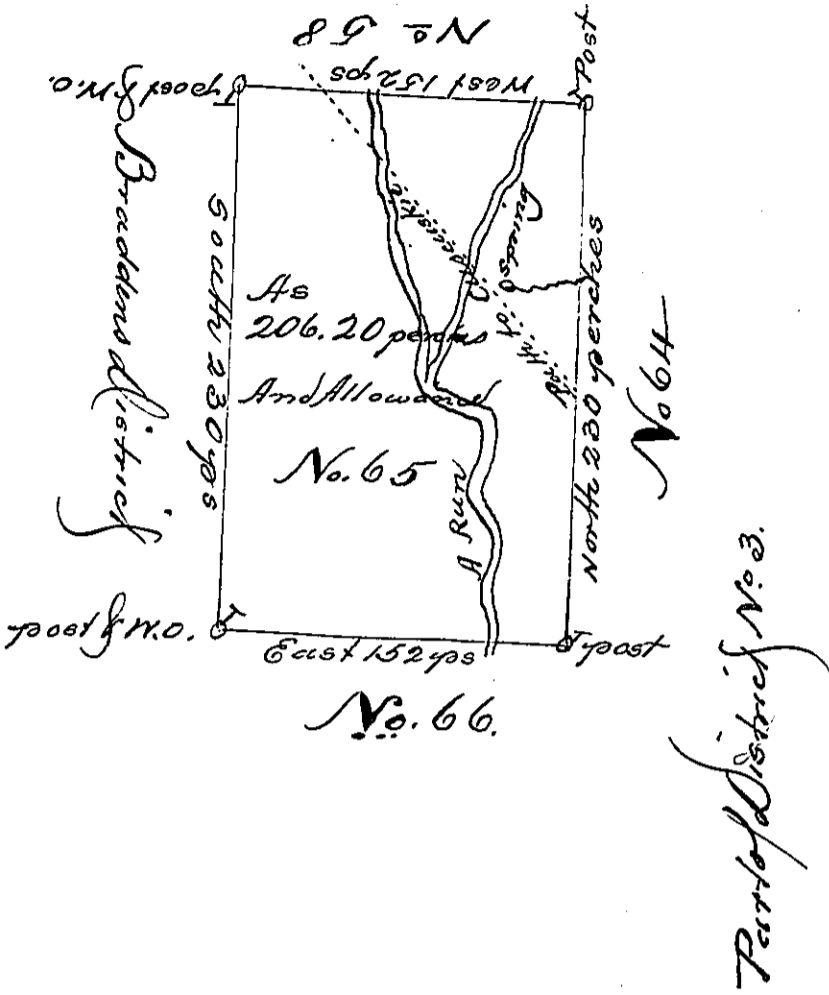 No 58
West 152 ps
post & W.O.
Post
Braddens district
South 230 ps
As
206.20 perches
And Allowance
No. 65
A Run
Path to
Springs
North 230 perches
No 64
post & W.O.
East 152 ps
post
No. 66.
Part of District No. 3.